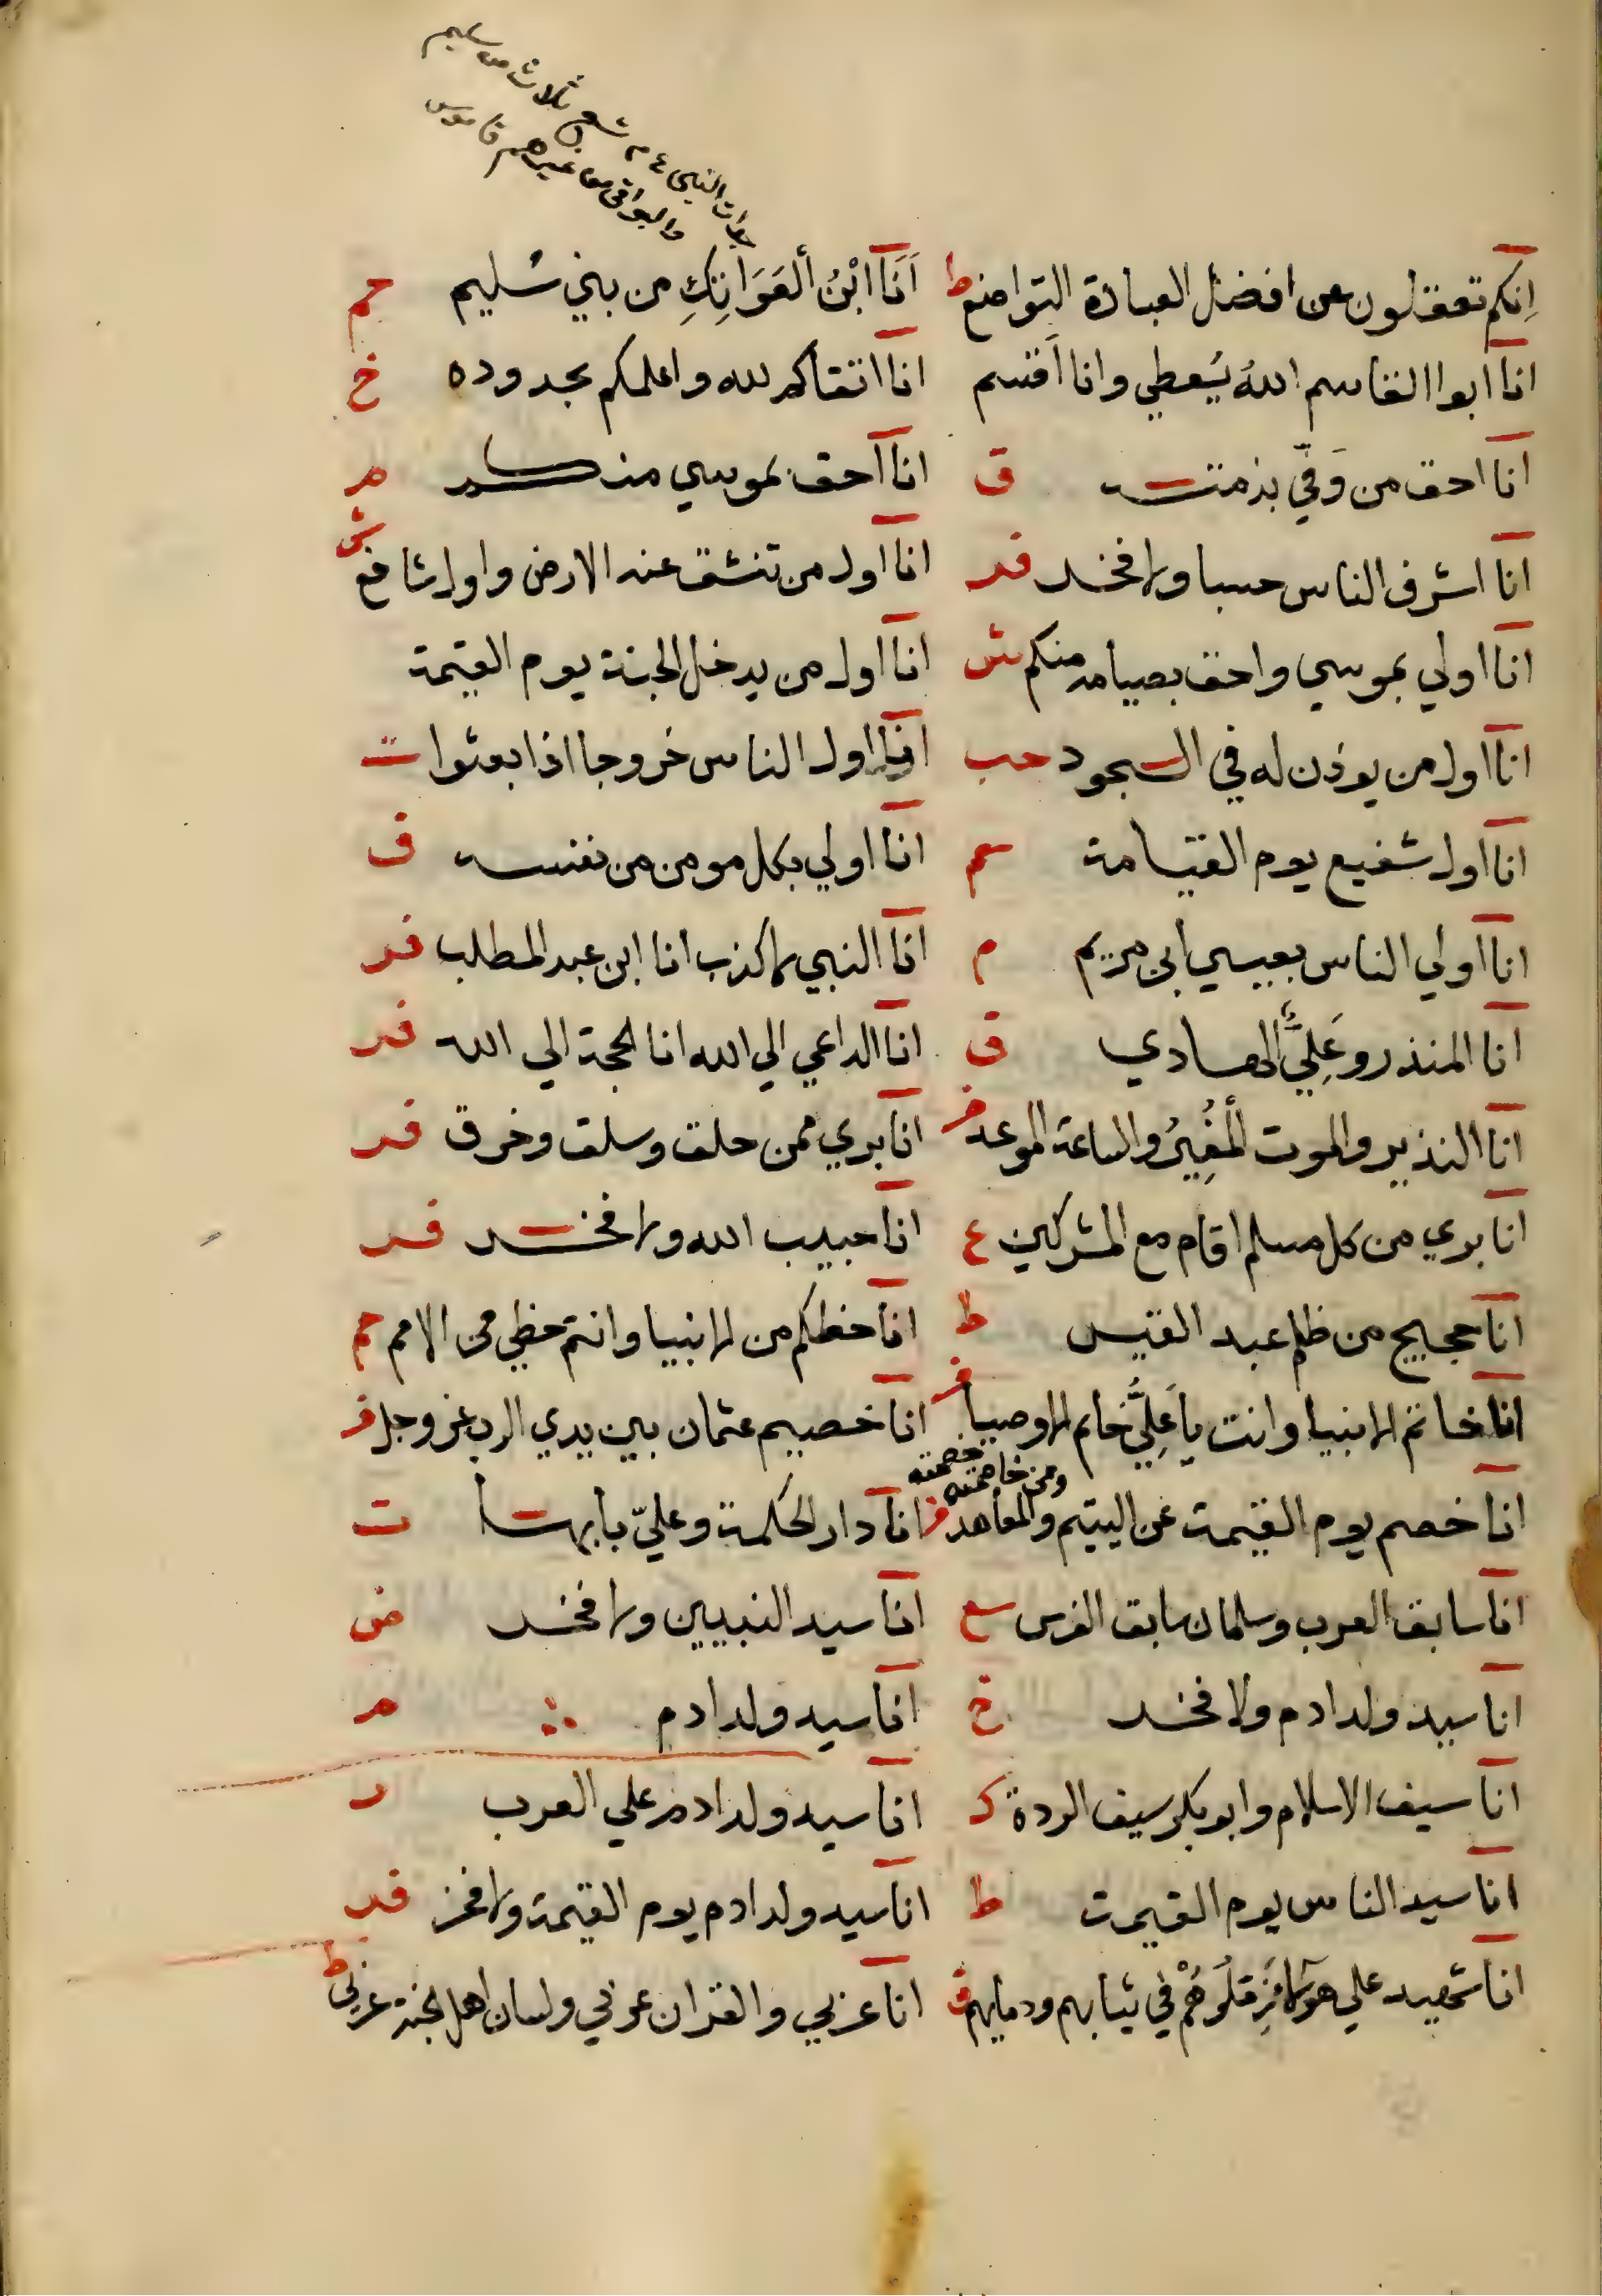 جدات النبي ع م تسع ثلاث من سليم
والبواقي من غيرهم قاموس
اِنكم تغفلون عن افضل العبادة التواضع ط اَنَا ابْنُ ألعَوَاتِكِ من بني سُليم حم
انا ابوا القاسم اللهُ يُعطي وانا اَقسم انا اتقاكم لله واعلمكم بحدوده خ
انا احق من وَفّي بذمته ق انا احق بموسي منكم م
انا اشرف الناس حسبا ولا فخر فر انا اول من تنشق عنه الارض واول شافع ش
انا اولي بموسي واحق بصيامه منكم ش انا اول من يدخل الجنة يوم القيمة
انا اول من يوذن له في السجود حب انا اول الناس خروجا اذا بعثوا ت
انا اول شفيع يوم القيامة سم انا اولي بكل مومن من نفسه ق
انا اولي الناس بعيسي ابن مريم م انا النبي لا كذب انا ابن عبد المطلب فر
انا المنذر وعَلِيٌّ الهادي ق انا الداعي الي الله انا الحجة الي الله فر
انا النذير والموت اَلْمُغِيرُ والساعة الموعد فر انا بري ممن حلق وسلق وخرق فر
انا بري من كل مسلم اقام مع المشركين ع انا حبيب الله ولا فخر فر
انا حجيج من ظلم عبد القيس ط انا حظكم من الانبيا وانتم حظي من الامم حم
انا خاتم الانبيا وانت يا عَلِيُّ خاتم الاوصيا فر انا خصيم عثمان بين يدي الرب عز وجل فر
ومن خاصمته خصمته
انا خصم يوم القيمة عن اليتيم والمعاهد فر انا دار الحكمة وعليّ بابها ت
انا سابق العرب وسلمان سابق الفرس سع انا سيد النبيين ولا فخر ض
انا سيد ولد ادم ولا فخر خ انا سيد ولد ادم م
انا سيف الاسلام وابو بكر سيف الردة ك انا سيد ولد ادم علي العرب د
انا سيد الناس يوم القيمت ط انا سيد ولد ادم يوم القيمة ولا فخر فر
انا شهيد علي هولا فزملوهُمْ في ثيابهم ودمايهم ق انا عربي والقران عربي ولسان اهل الجنة عربي ط